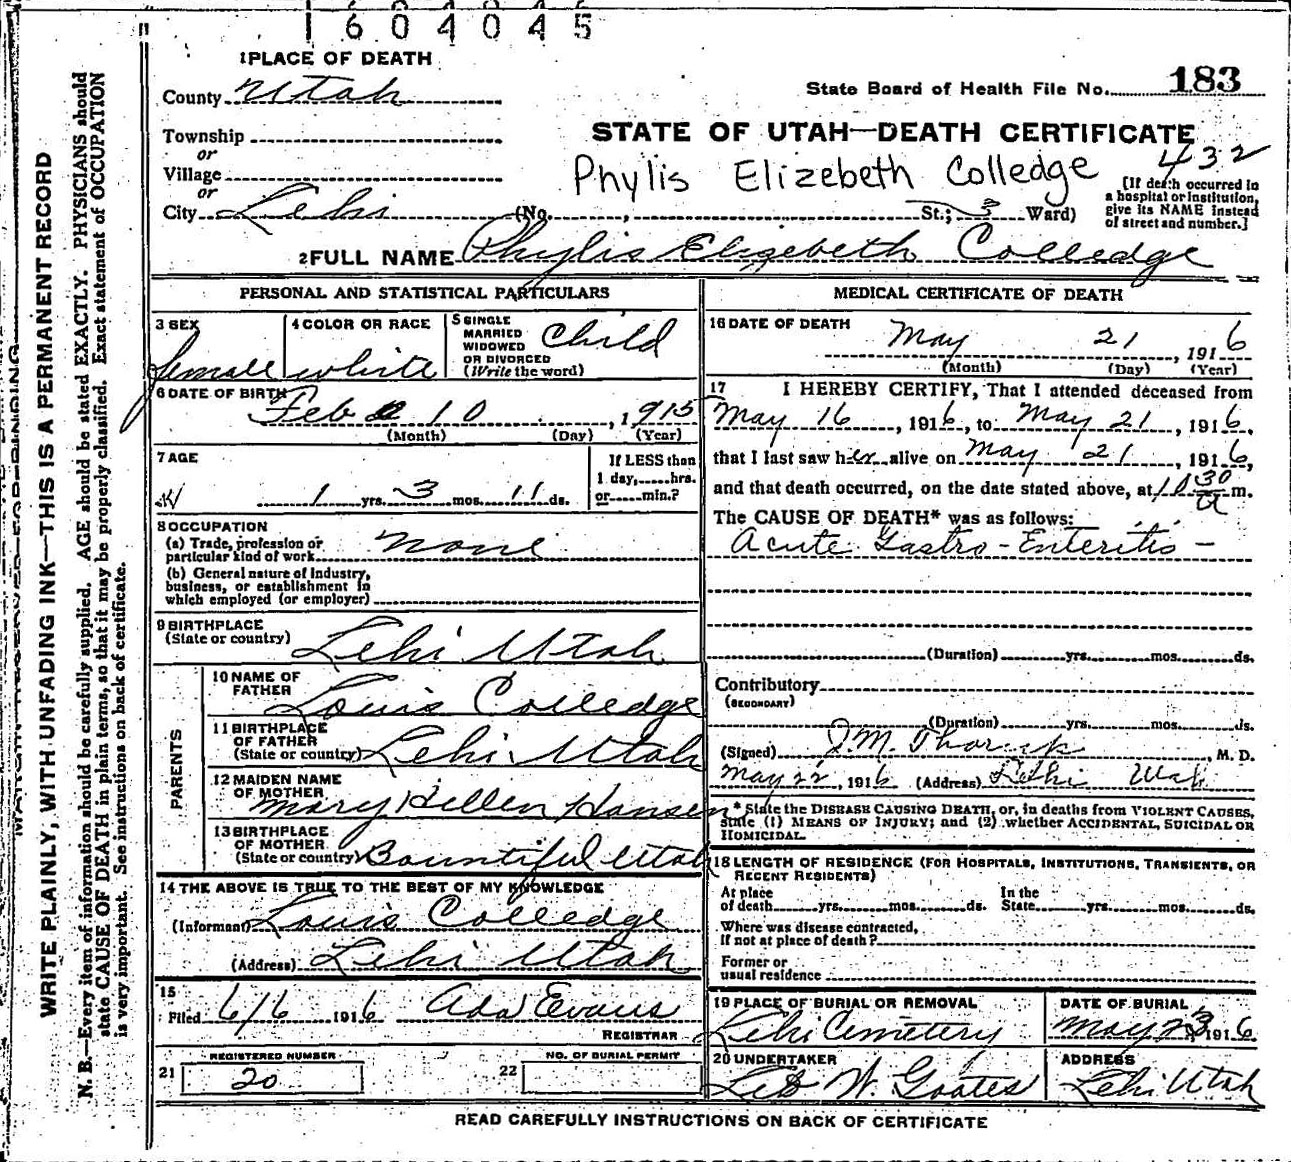 1604045
1 PLACE OF DEATH
County Utah
State Board of Health File No. 183
Township
or
Village
or
City Lehi (No. , St.; 3 Ward)
STATE OF UTAH—DEATH CERTIFICATE
432
Phylis Elizebeth Colledge
[If death occurred in
a hospital or institution,
give its NAME instead
of street and number.]
2 FULL NAME Phylis Elizebeth Colledge
PERSONAL AND STATISTICAL PARTICULARS
3 SEX female
4 COLOR OR RACE white
5 SINGLE
MARRIED
WIDOWED
OR DIVORCED
(Write the word) Child
6 DATE OF BIRTH Feb 10 , 1915
(Month) (Day) (Year)
7 AGE
If LESS than
1 day,.....hrs.
or.....min.?
1 yrs. 3 mos. 11 ds.
8 OCCUPATION
(a) Trade, profession or
particular kind of work none
(b) General nature of Industry,
business, or establishment in
which employed (or employer)
9 BIRTHPLACE
(State or country) Lehi Utah
PARENTS
10 NAME OF
FATHER Louis Colledge
11 BIRTHPLACE
OF FATHER
(State or country) Lehi Utah
12 MAIDEN NAME
OF MOTHER Mary Hellen Hansen
13 BIRTHPLACE
OF MOTHER
(State or country) Bountiful Utah
14 THE ABOVE IS TRUE TO THE BEST OF MY KNOWLEDGE
(Informant) Louis Colledge
(Address) Lehi Utah
15
Filed 6/6 1916 Ada Evans
REGISTRAR
REGISTERED NUMBER
21 20
NO. OF BURIAL PERMIT
22
MEDICAL CERTIFICATE OF DEATH
16 DATE OF DEATH
May 21 , 1916
(Month) (Day) (Year)
17 I HEREBY CERTIFY, That I attended deceased from
May 16 , 1916, to May 21 , 1916,
that I last saw her alive on May 21 , 1916,
and that death occurred, on the date stated above, at 10 30 a m.
The CAUSE OF DEATH* was as follows:
Acute Gastro-Enteritis -
(Duration) yrs. mos. ds.
Contributory
(SECONDARY)
(Duration) yrs. mos. ds.
(Signed) J.M. M. D.
May 22, 1916 (Address) Lehi Utah
* State the DISEASE CAUSING DEATH, or, in deaths from VIOLENT CAUSES,
state (1) MEANS OF INJURY; and (2) whether ACCIDENTAL, SUICIDAL OR
HOMICIDAL.
18 LENGTH OF RESIDENCE (FOR HOSPITALS, INSTITUTIONS, TRANSIENTS, OR
RECENT RESIDENTS)
At place
of death yrs. mos. ds.
In the
State yrs. mos. ds.
Where was disease contracted,
if not at place of death?
Former or
usual residence
19 PLACE OF BURIAL OR REMOVAL
Lehi Cemetery
DATE OF BURIAL
May 23, 1916
20 UNDERTAKER
W. Goates
ADDRESS
Lehi Utah
READ CAREFULLY INSTRUCTIONS ON BACK OF CERTIFICATE
WRITE PLAINLY, WITH UNFADING INK—THIS IS A PERMANENT RECORD
N. B.—Every item of information should be carefully supplied. AGE should be stated EXACTLY. PHYSICIANS should
state CAUSE OF DEATH in plain terms, so that it may be properly classified. Exact statement of OCCUPATION
is very important. See instructions on back of certificate.